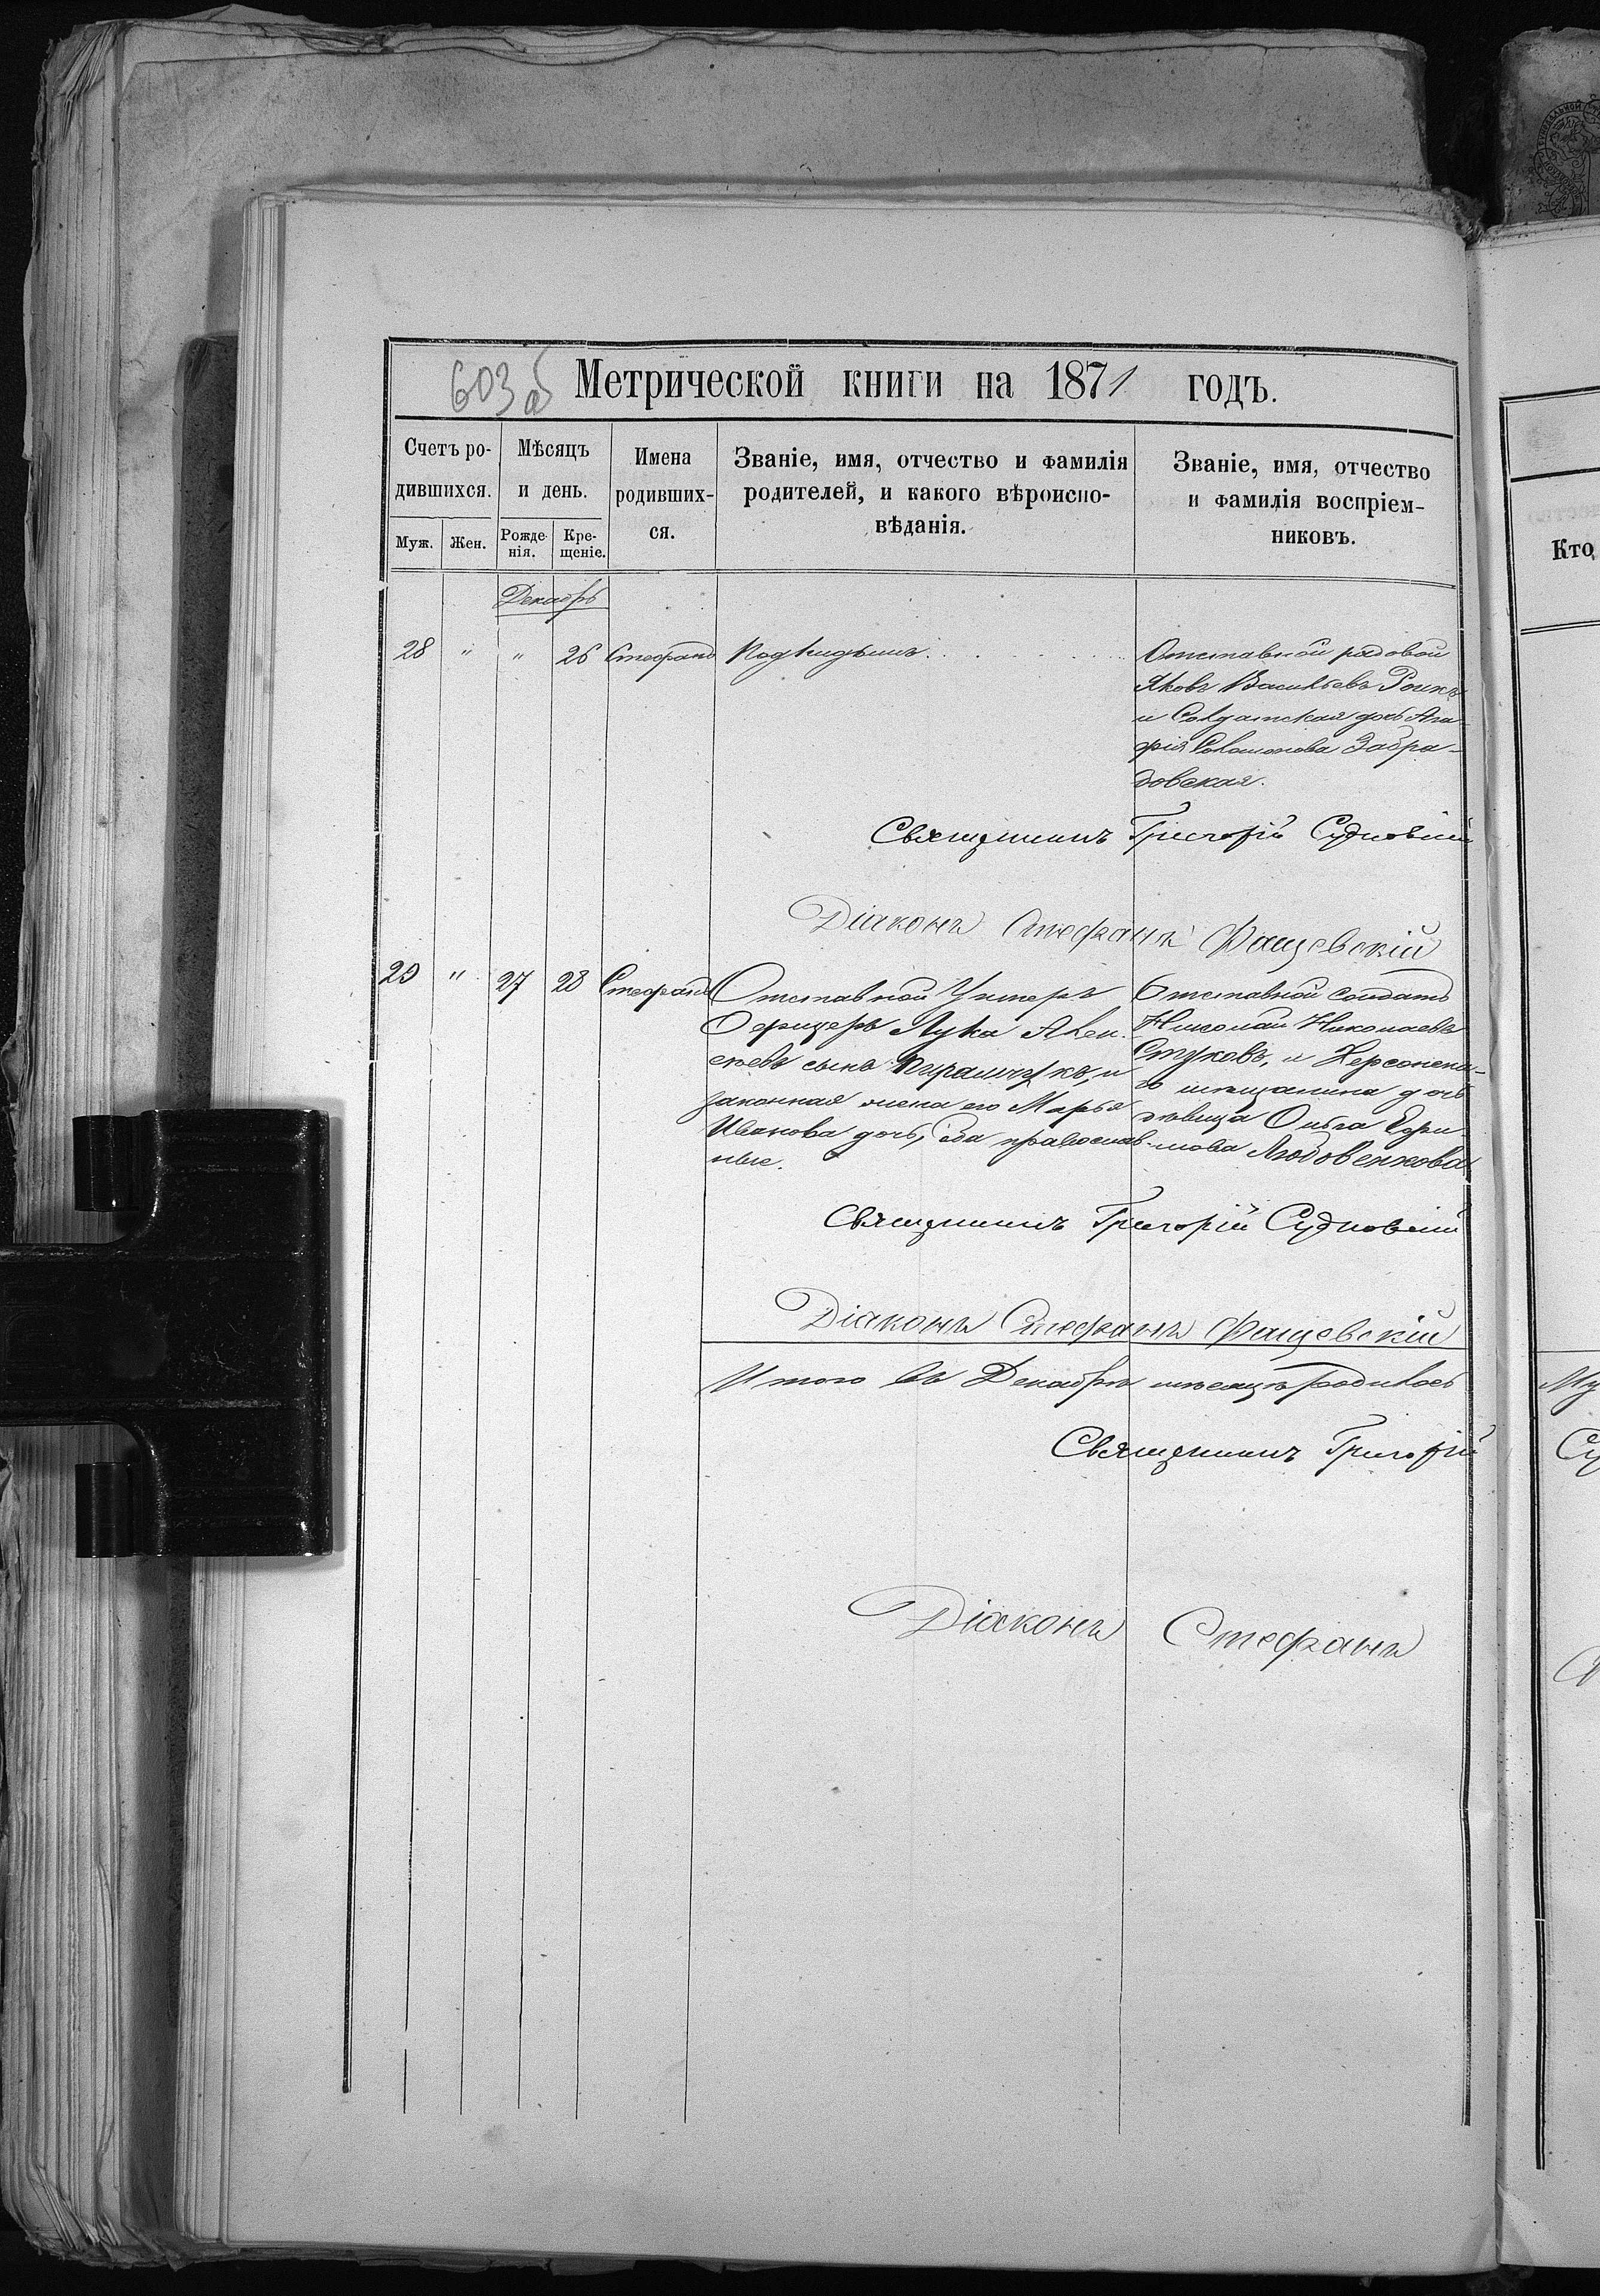 603 об
Метрической книги на 1871 годъ.
Счетъ ро-
дившихся.
Муж. Жен.
Мѣсяцъ
и день.
Рожде-
нія.
Кре-
щеніе.
Имена
родивших-
ся.
Званіе, имя, отчество и фамилія
родителей, и какого вѣроиспо-
вѣданія.
Званіе, имя, отчество
и фамилія воспріем-
никовъ.
Кто
Декабрь
28 " " 26 Стефанъ Подкидышъ.
Отставной рядовой
Яковъ Васильевъ
и Солдатская дочь Ага-
фія Соломонова Забра-
довская.
Священникъ Григорій Судковскій
Діаконъ Стефанъ Фащевскій
29 " 27 28 Стефанъ
Отставной Унтеръ
Офицеръ Лука Алек-
сѣевъ сынъ и
законная жена его Марья
Иванова дочь, оба православ-
ные.
Отставной солдатъ
Николай Николаевъ
Стуковъ, и Херсонска-
го мѣщанина дочь
дѣвица Ольга Ефи-
мова Людовенкова
Священникъ Григорій Судковскій
Діаконъ Стефанъ Фащевскій
Итого въ Декабрѣ мѣсяцѣ родилось
Священникъ Григорій
Діаконъ Стефанъ
Му
Су